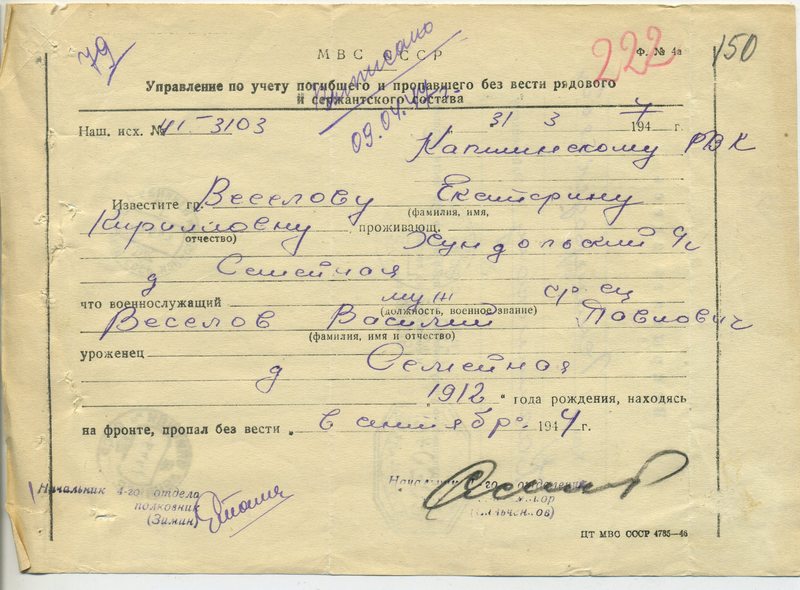 79
выписано
09.04.47 г.
222
150
МВС СССР
Ф. № 4а
Управление по учету погибшего и пропавшего без вести рядового
и сержантского состава
Наш. исх. № 41-3103 31 3 1947 г.
Капшинскому РВК
Известите гр. Веселову Екатерину
(фамилия, имя,
Кирилловну, проживающ. Хундольский с/с
отчество)
д Семейная
что военнослужащий муж
(должность, военное звание)
Веселов Василий Павлович
(фамилия, имя и отчество)
уроженец
д Семейная
1912 года рождения, находясь
на фронте, пропал без вести в 1944 г.
Начальник 4-го отдела
полковник
(Зимин)
Начальник 1-го отделения
ЦТ МВС СССР 4785—46